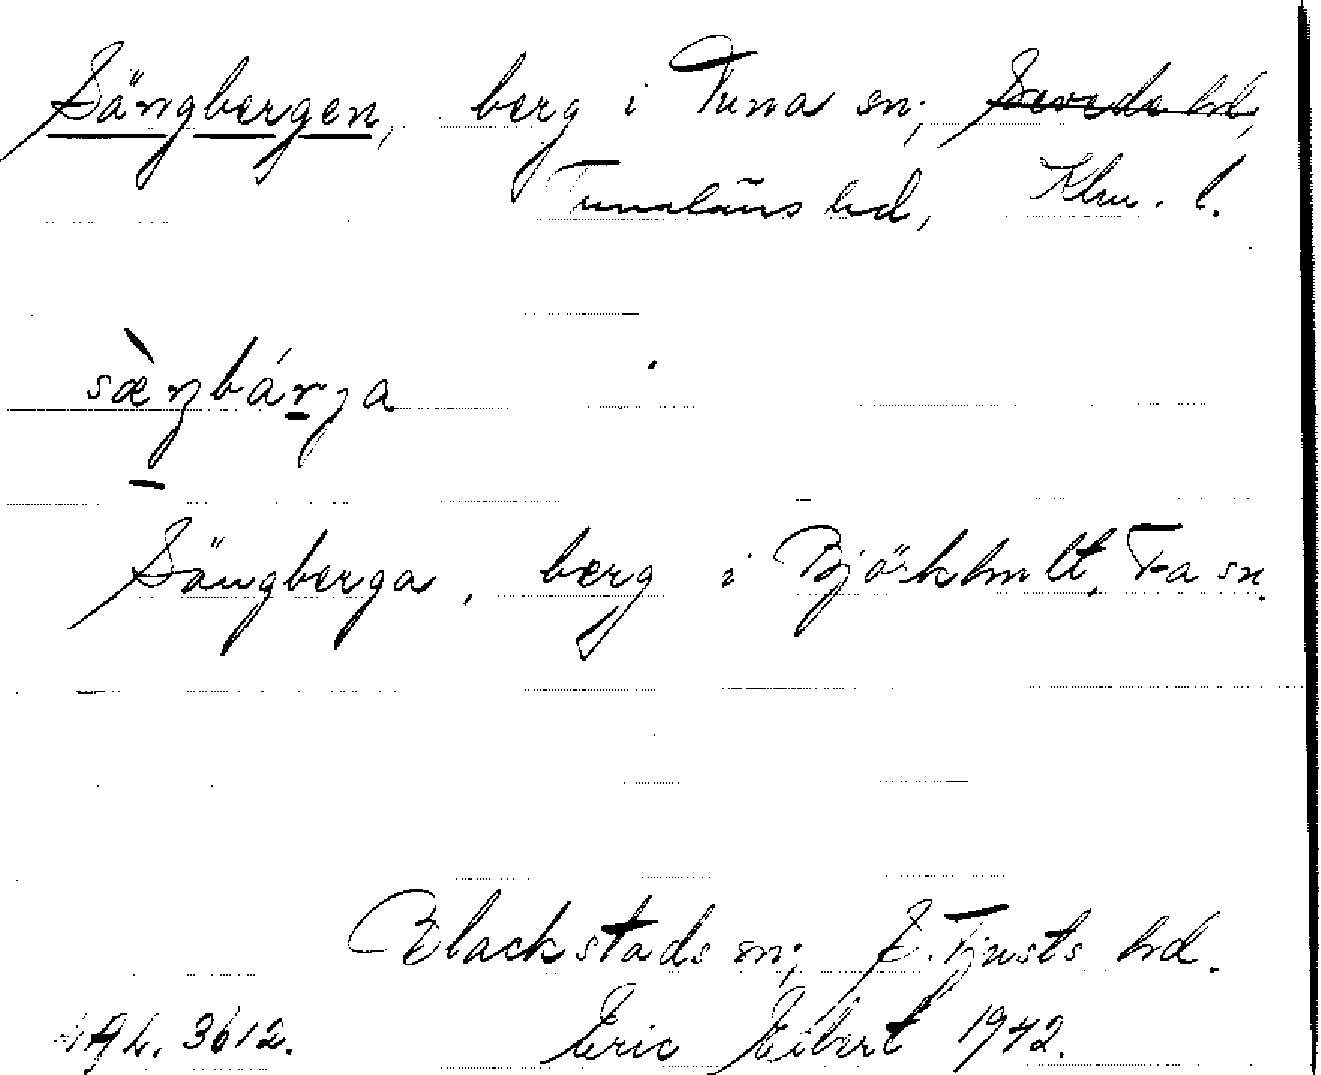 Sängbergen, berg i Tuna sn, Sevede hd,
Tunaläns hd, Klm. l.
sæ̀ŋbárga
Sängberga, berg i Björkhult, T-a sn.
Blackstads sn, S. Tjusts hd.
3612. Eric Eibert 1942.